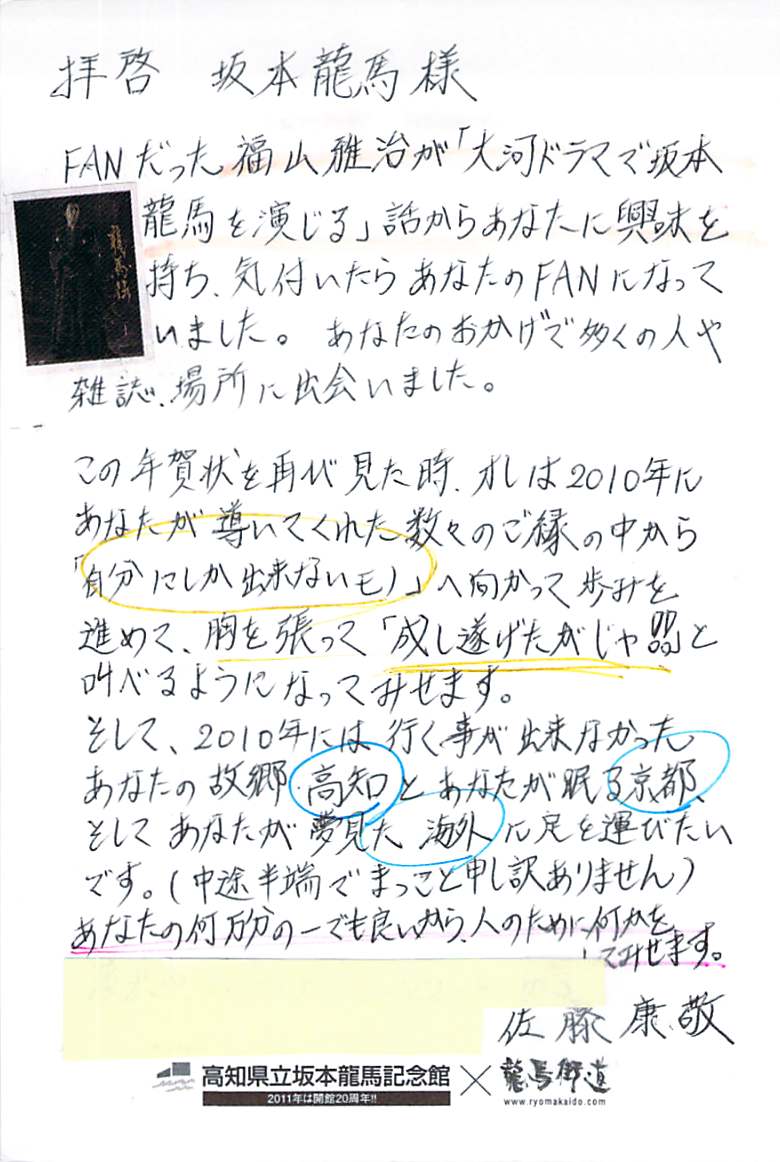 拝啓 坂本龍馬様
FANだった福山雅治が「大河ドラマで坂本
龍馬を演じる」話からあなたに興味を
持ち、気付いたらあなたのFANになって
いました。 あなたのおかげで多くの人や
雑誌、場所に出会いました。
この年賀状を再び見た時、オレは2010年に
あなたが導いてくれた数々のご縁の中から
「自分にしか出来ないモノ」へ向かって歩みを
進めて、胸を張って「成し遂げたがじゃ!!」と
叫べるようになってみせます。
そして、2010年には行く事が出来なかった
あなたの故郷・高知とあなたが眠る京都、
そしてあなたが夢見た海外に足を運びたい
です。(中途半端でまっこと申し訳ありません)
あなたの何万分の一でも良いから、人のために何かを
してみせます。
佐藤康敬
高知県立坂本龍馬記念館 × 龍馬街道
2011年は開館20周年!!
www.ryomakaido.com